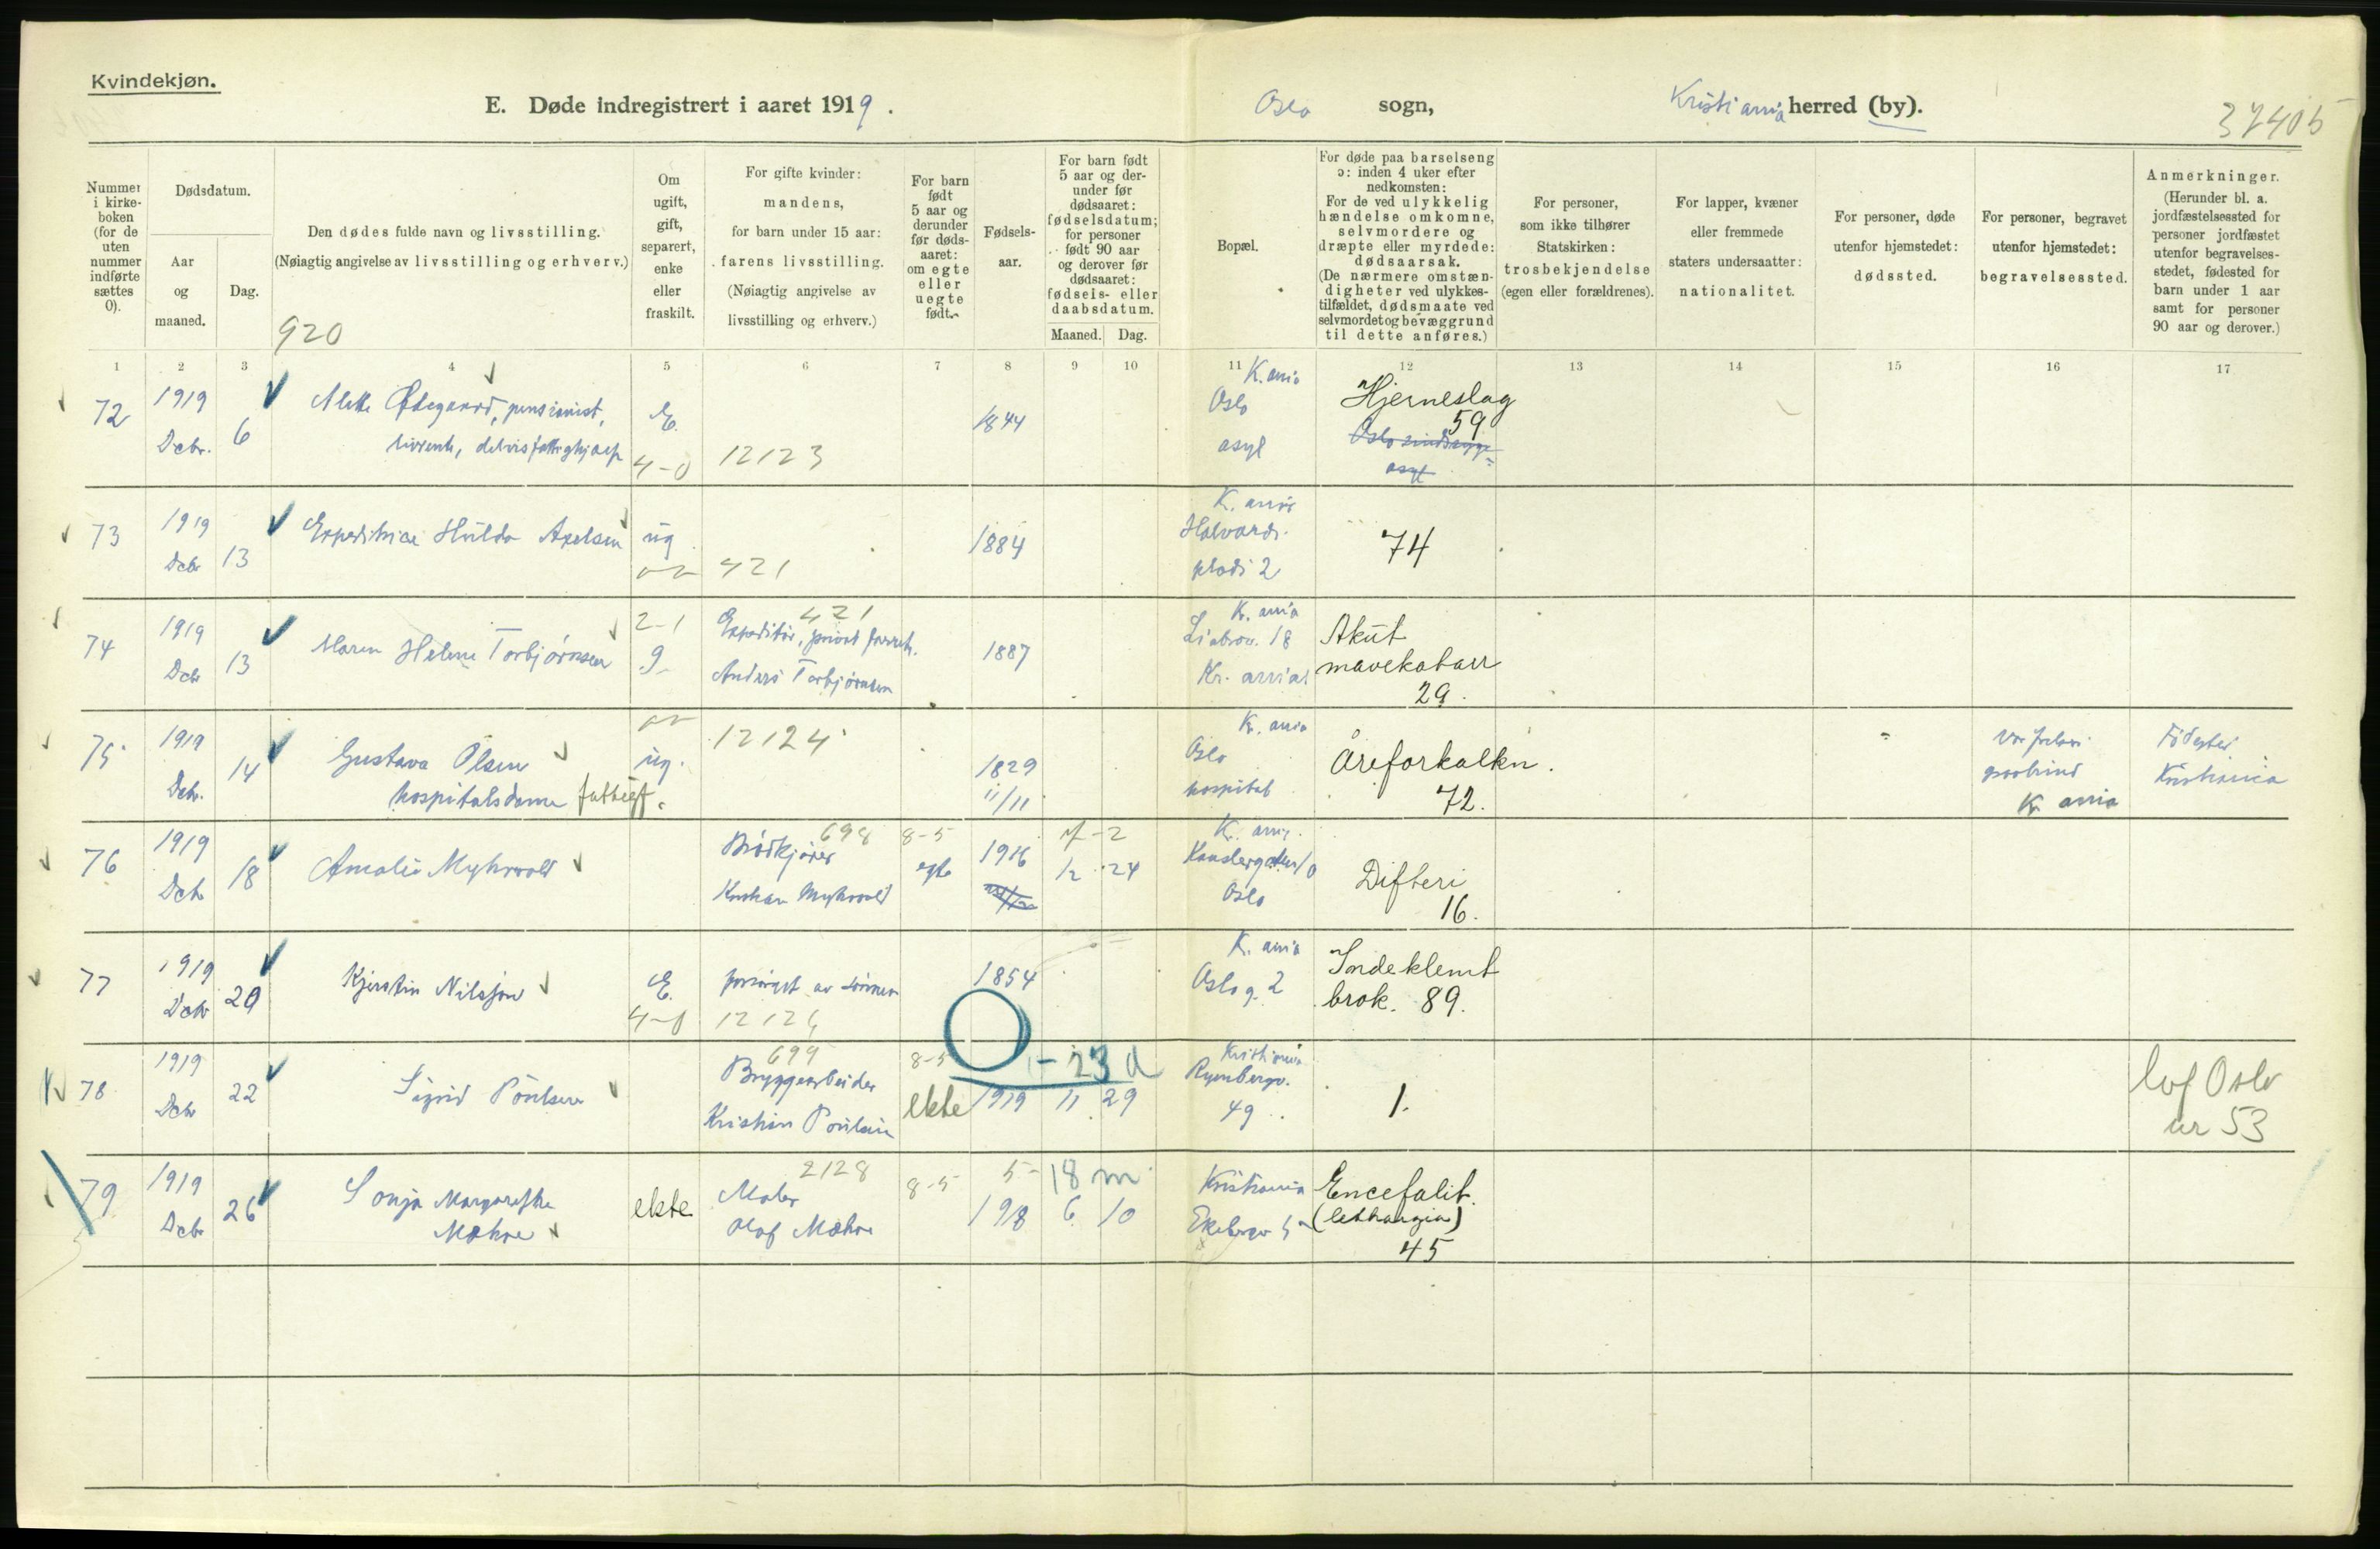 Kvindekjøn.
E. Døde indregistrert i aaret 1919.
Oslo sogn,
Kristiania herred (by).
37405
Nummer i kirke-boken (for de uten nummer indførte sættes 0).
Dødsdatum.
Aar og maaned.
Dag.
Den dødes fulde navn og livsstilling.
(Nøiagtig angivelse av livsstilling og erhverv.)
920
Om ugift, gift, separert, enke eller fraskilt.
For gifte kvinder: mandens, for barn under 15 aar: farens livsstilling.
(Nøiagtig angivelse av livsstilling og erhverv.)
For barn født 5 aar og derunder før døds-aaret: om egte eller uegte født.
Fødsels-aar.
For barn født 5 aar og der-under før dødsaaret: fødselsdatum; for personer født 90 aar og derover før dødsaaret: fødsels- eller daabsdatum.
Maaned. Dag.
Bopæl.
For døde paa barselseng ɔ: inden 4 uker efter nedkomsten:
For de ved ulykkelig hændelse omkomne, selvmordere og dræpte eller myrdede: dødsaarsak.
(De nærmere omstæn-digheter ved ulykkes-tilfældet, dødsmaate ved selvmordet og bevæggrund til dette anføres.)
For personer, som ikke tilhører Statskirken: trosbekjendelse (egen eller forældrenes).
For lapper, kvæner eller fremmede staters undersaatter: nationalitet.
For personer, døde utenfor hjemstedet: dødssted.
For personer, begravet utenfor hjemstedet: begravelsessted.
Anmerkninger.
(Herunder bl. a. jordfæstelsessted for personer jordfæstet utenfor begravelses-stedet, fødested for barn under 1 aar samt for personer 90 aar og derover.)
1 2 3 4 5 6 7 8 9 10 11 12 13 14 15 16 17
72 1919 Dcbr. 6
Alette Ødegaard, pensionist,
livrente, delvis fattighjælp
E. 4-0 12123
1844
K.ania Oslo asyl
Hjerneslag 59
Oslo sindssyge-asyl
73 1919 Dcbr 13
Expeditrice Hulda Axelsen
ug 421
1884
K. ania Halvards plads 2
74
74 1919 Dcbr 13
Maren Helene Torbjørnsen
2-1 g.
421
Expeditør, privat forretn.
Anders Torbjørnsen
1887
K. ania
Liabrov. 18
Kr. ania
Akut mavekatarr 29.
75 1919 Dcbr. 14
Gustava Olsen
hospitalsdame fattigf.
ug. 12124
1829
11/11
K. ania Oslo hospital
Åreforkalkn. 72.
Vor frelsers gravlund
K. ania
Fødested Kristiania
76 1919 Dcbr 18
Amalie Myhrvold
698
Brødkjører
Kristian Myhrvold
8-5 egte
1916
2
12 24
K. ania.
Kanslergaten 10
Oslo
Difteri 16.
77 1919 Dcbr 20
Kjerstin Nilsson
E. 4-0
forsørget av sønnen
12126
1854
K. ania
Oslo g. 2
Indeklemt brok. 89.
78 1919 Dcbr 22
Sigrid Poulsen
699
Bryggearbeider
Kristian Poulsen
8-5 ekte
0 - 23 d
1919 11 29
Kristiania
Ryenbergv. 49
1.
lof Oslo nr 53
79 1919 Dcbr 26
Sonja Margarethe
Mæhre
ekte
2128
Maler
Olaf Mæhre
8-5
5- 18 m
1918 6 10
Kristiania
Ekebergv 5
Encefalit.
(lethargia)
45